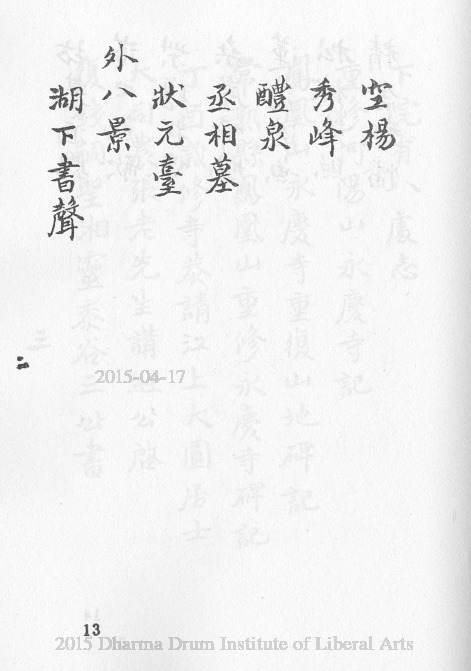 空楊
秀峰
醴泉
丞相墓
狀元臺
外八景
湖下書聲
二
2015-04-17
13
2015 Dharma Drum Institute of Liberal Arts